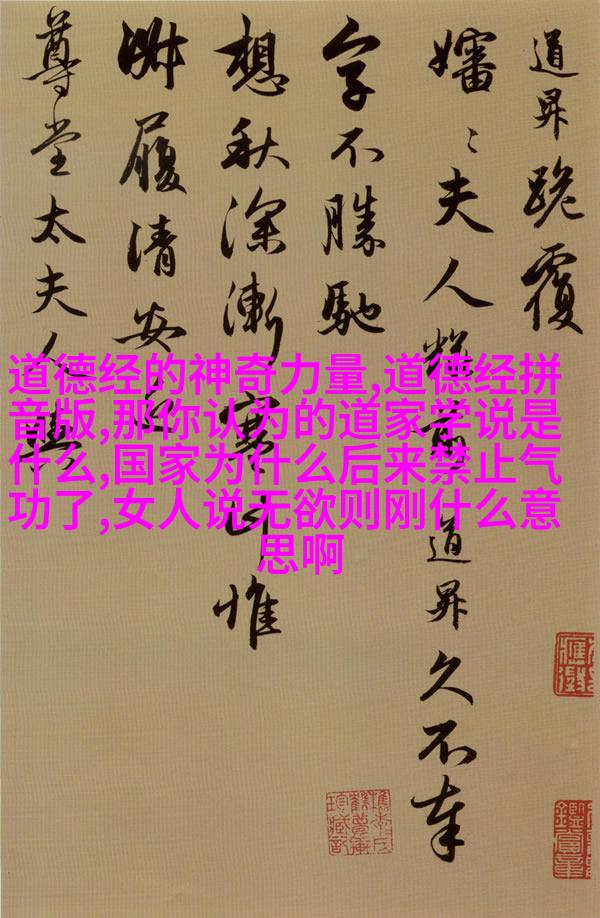 道昇跪覆
嬸〻夫人粧前道昇久不奉
字不勝馳
想秋深漸寒計惟
淋履清安近
尊堂太夫人與
道德经的神奇力量,道德经拼
音版,那你认为的道家学说是
什么,国家为什么后来禁止气
功了,女人说无欲则刚什么意
思啊